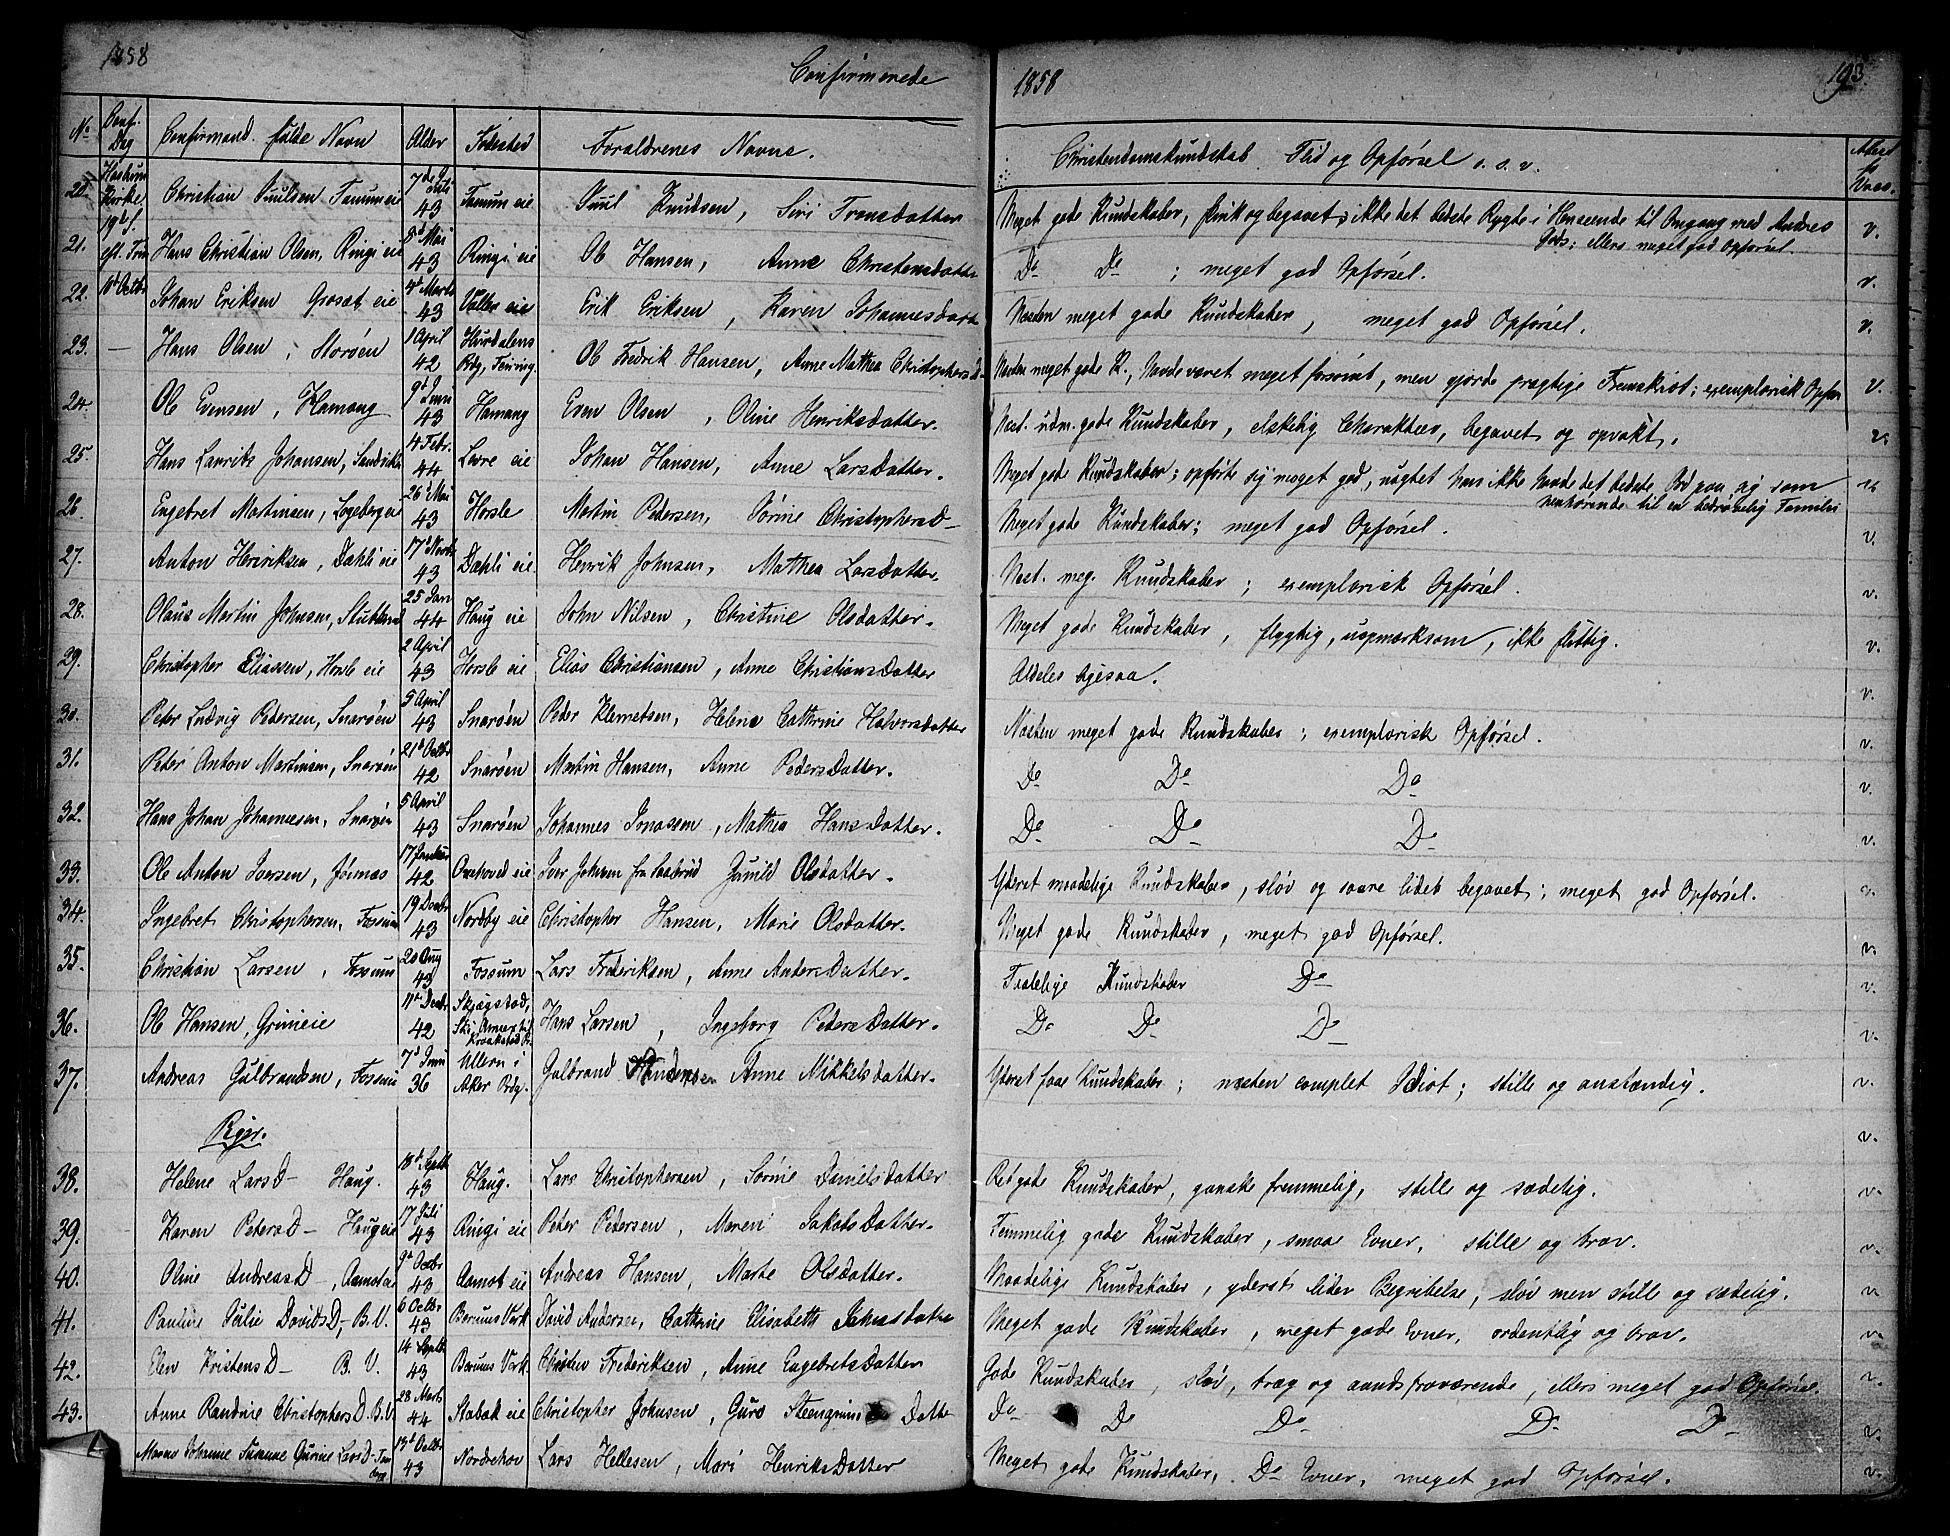 1858 Confirmerede
1858 193
No Conf. Dag Confirmand. fulde Navn Alder Fødested Forældrenes Navne. Christendomskundskab Flid og Opførsel o.s.v.
Haslum Kirke 19d S. eft. Trin 10d Octbr
20. Christian Puulsen Tanum eie 7de Juli 43 Tanum eie Puul Knudsen, Siri Trons datter Meget gode Kundskaber, kvik og begavet; ikke det bedste Rygte i Henseende til Omgang med Andres
Gods; ellers meget god Opførsel. v.
21. Hans Christian Olsen, Ringi eie 8d Mai 43 Ringi eie Ole Hansen, Anne Christensdatter Do Do ; meget god Opførsel. v.
22. Johan Eriksen Grosæt eie 4d Marts 43 Valler eie Erik Eriksen, Karen Johannesdatt Næsten meget gode Kundskaber, meget god Opførsel. v.
23. — Hans Olsen, Storøen 1 April 42 Hurdalens Pdg, Feiring. Ole Fredrik Hansen, Anne Mathea Christophersd- Næsten meget gode K., havde været meget forsømt, men gjorde prægtige Fremskridt; exemplarisk Opførs v.
24. Ole Evensen, Hamang 9d Juni 43 Hamang Even Olsen, Oline Henriksdatter. Næst. udm. gode Kundskaber, elskelig Charakteer, begavet og opvakt. v.
25. Hans Laurits Johansen, Sandvike 4 Febr. 44 Løvre eie Johan Hansen, Anne Larsdatter. Meget gode Kundskaber; opførte sig meget god, uagtet han ikke havde det bedste Ord paa sig som
henhørende til en bedrøvelig Familie v.
26 Engebret Martinsen, Løgeberg eie 26d Mai 43 Horsle Martin Pedersen, Sørine ChristophersD- Meget gode Kundskaber; meget god Opførsel. v.
27. Anton Henriksen, Dæhli eie 17d Novbr. 43 Dæhli eie Henrik Johnsen, Mathea Larsdatter. Næst. meg. Kundskaber; exemplarisk Opførsel. v.
28. Olaus Martin Johnsen, Stubberud 25 Jan 44 Haug eie John Nilsen, Christine Olsdatter. Meget gode Kundskaber, flygtig, uopmærksom, ikke flittig. v.
29. Christopher Eliassen, Horsle eie 2 April 43 Horsle eie Elias Christiansen, Anne Christiansdatter Aldeles ligesaa. v.
30. Peter Ludvig Pedersen, Snarøen 5 April 43 Snarøen Peder Klemetsen, Helene Cathrine Halvorsdatter Næsten meget gode Kundskaber; exemplarisk Opførsel. v.
31. Peter Anton Martinsen, Snarøen 21d Octbr 42 Snarøen Martin Hansen, Anne Pedersdatter. Do Do Do v.
32. Hans Johan Johannesen, Snarøen 5 April 43 Snarøen Johannes Jonassen, Mathea Hansdatter. Do Do Do v.
33. Ole Anton Iversen, Jørnæs 17 Januar 42 Oxehoved eie Iver Johnsen fra Saabrud Gunild Olsdatter. Yderst maadelige Kundskaber, sløv og saare lidet begavet; meget god Opførsel. v.
34. Ingebret Christophersen, Fossum 19 Decbr 43 Nordby eie Christopher Hansen, Marie Olsdatter. Meget gode Kundskaber, meget god Opførsel. v.
35. Christian Larsen, Fossum 20 Aug 43 Fossum Lars Frederiksen, Anne Andersdatter. Taalelige Kundskaber Do v.
36. Ole Hansen, Grini eie 11d Decbr. 42 Skjægstad, Ski Annex til Kraakstad Pr. Hans Larsen, Ingeborg Peters Datter. Do Do Do v.
37. Andreas Gulbrandsen, Fossum 7d Juni 36 Ullern i Aker Pdg. Gulbrand Andersen Anne Nikkelsdatter. Yderst faae Kundskaber; næsten complet Idiot; stille og anstændig. v.
Piger. v.
38. Helene LarsD- Haug. 18d Septb 43 Haug. Lars Christophersen, Sørine Danielsdatter Ret gode Kundskaber, ganske fremmelig, stille og sædelig. v.
39. Karen PetersD- Haug eie 17 Juli 43 Ringi eie Peter Petersen, Maren Jakobsdatter. Temmelig gode Kundskaber, smaa Evner, stille og brav. v.
40. Oline AndreasD-, Aamot eie 9d Octbr 43 Aamot eie Andreas Hansen, Marte Olsdatter. Maadelige Kundskaber, yderst liden Begribelse, sløv men stille og sædelig. v
41. Pauline Julie DavidsD-, B.V. 6 Octbr 43 Bærums Værk David Andersen, Cathrine Elisabeth Jonasdatter Meget gode Kundskaber, meget gode Evner, ordentlig og brav. v.
42. Elen KristensD- B.V. 14 Septbr 43 Bærums Værk. Christen Frederiksen, Anne Engebretsdatter Gode Kundskaber, sløv, træg og aandsfraværende, ellers meget god Opførsel. v.
43. Anne Randine ChristophersD. B.V. 28 Marts 44 Stabæk eie Christopher Johnsen, Guro Steengrims Datter Do D Do D D v.
Johanne Susanne Gurine LarsD- 13d Octbr 43 Norderhov Lars Hellesen, Mari HenriksDatter Meget gode Kundskaber, Do Evner, meget god Opførsel. v.